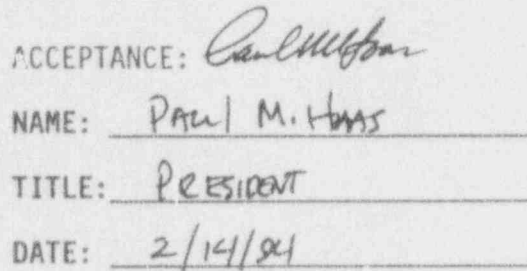 ACCEPTANCE:
NAME: PAUL M. HAAS
TITLE: PRESIDENT
DATE: 2/14/94